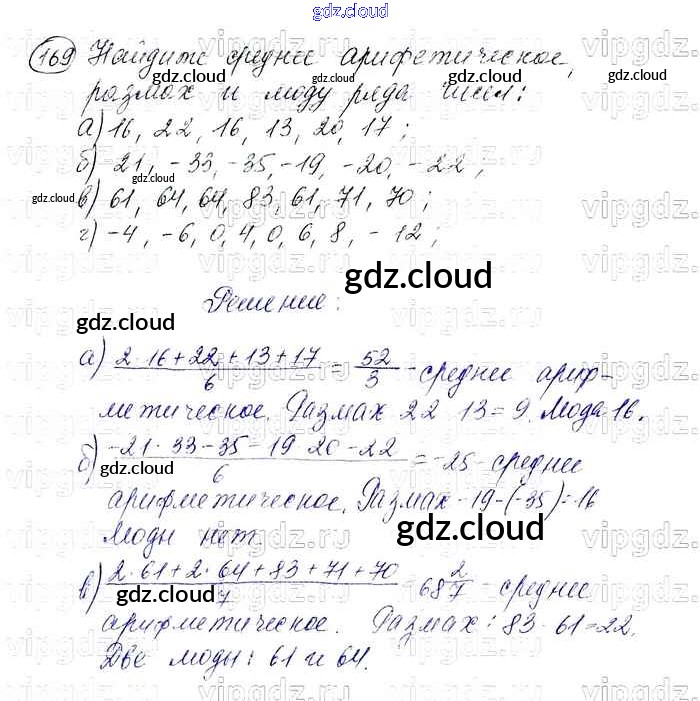 gdz.cloud
169 Найдите среднее арифметическое,
размах и моду ряда чисел:
а) 16, 22, 16, 13, 20, 17;
б) -21, -33, -35, -19, -20, -22;
в) 61, 64, 64, 83, 61, 71, 70;
г) -4, -6, 0, 4, 0, 6, 8, -12;
gdz.cloud
Решение:
gdz.cloud
а) 2·16+22+13+17 / 6 = 52 / 3 - среднее ариф-
метическое. Размах 22 13 = 9. Мода 16.
б) -21· 33-35-19 20-22 / 6 = -25 - среднее
арифметическое. Размах -19-(-35)=16
Моды нет.
gdz.cloud
в) 2·61+2·64+83+71+70 / 7 = 68 2/7 - среднее
арифметическое. Размах: 83 61=22.
Две моды: 61 и 64.